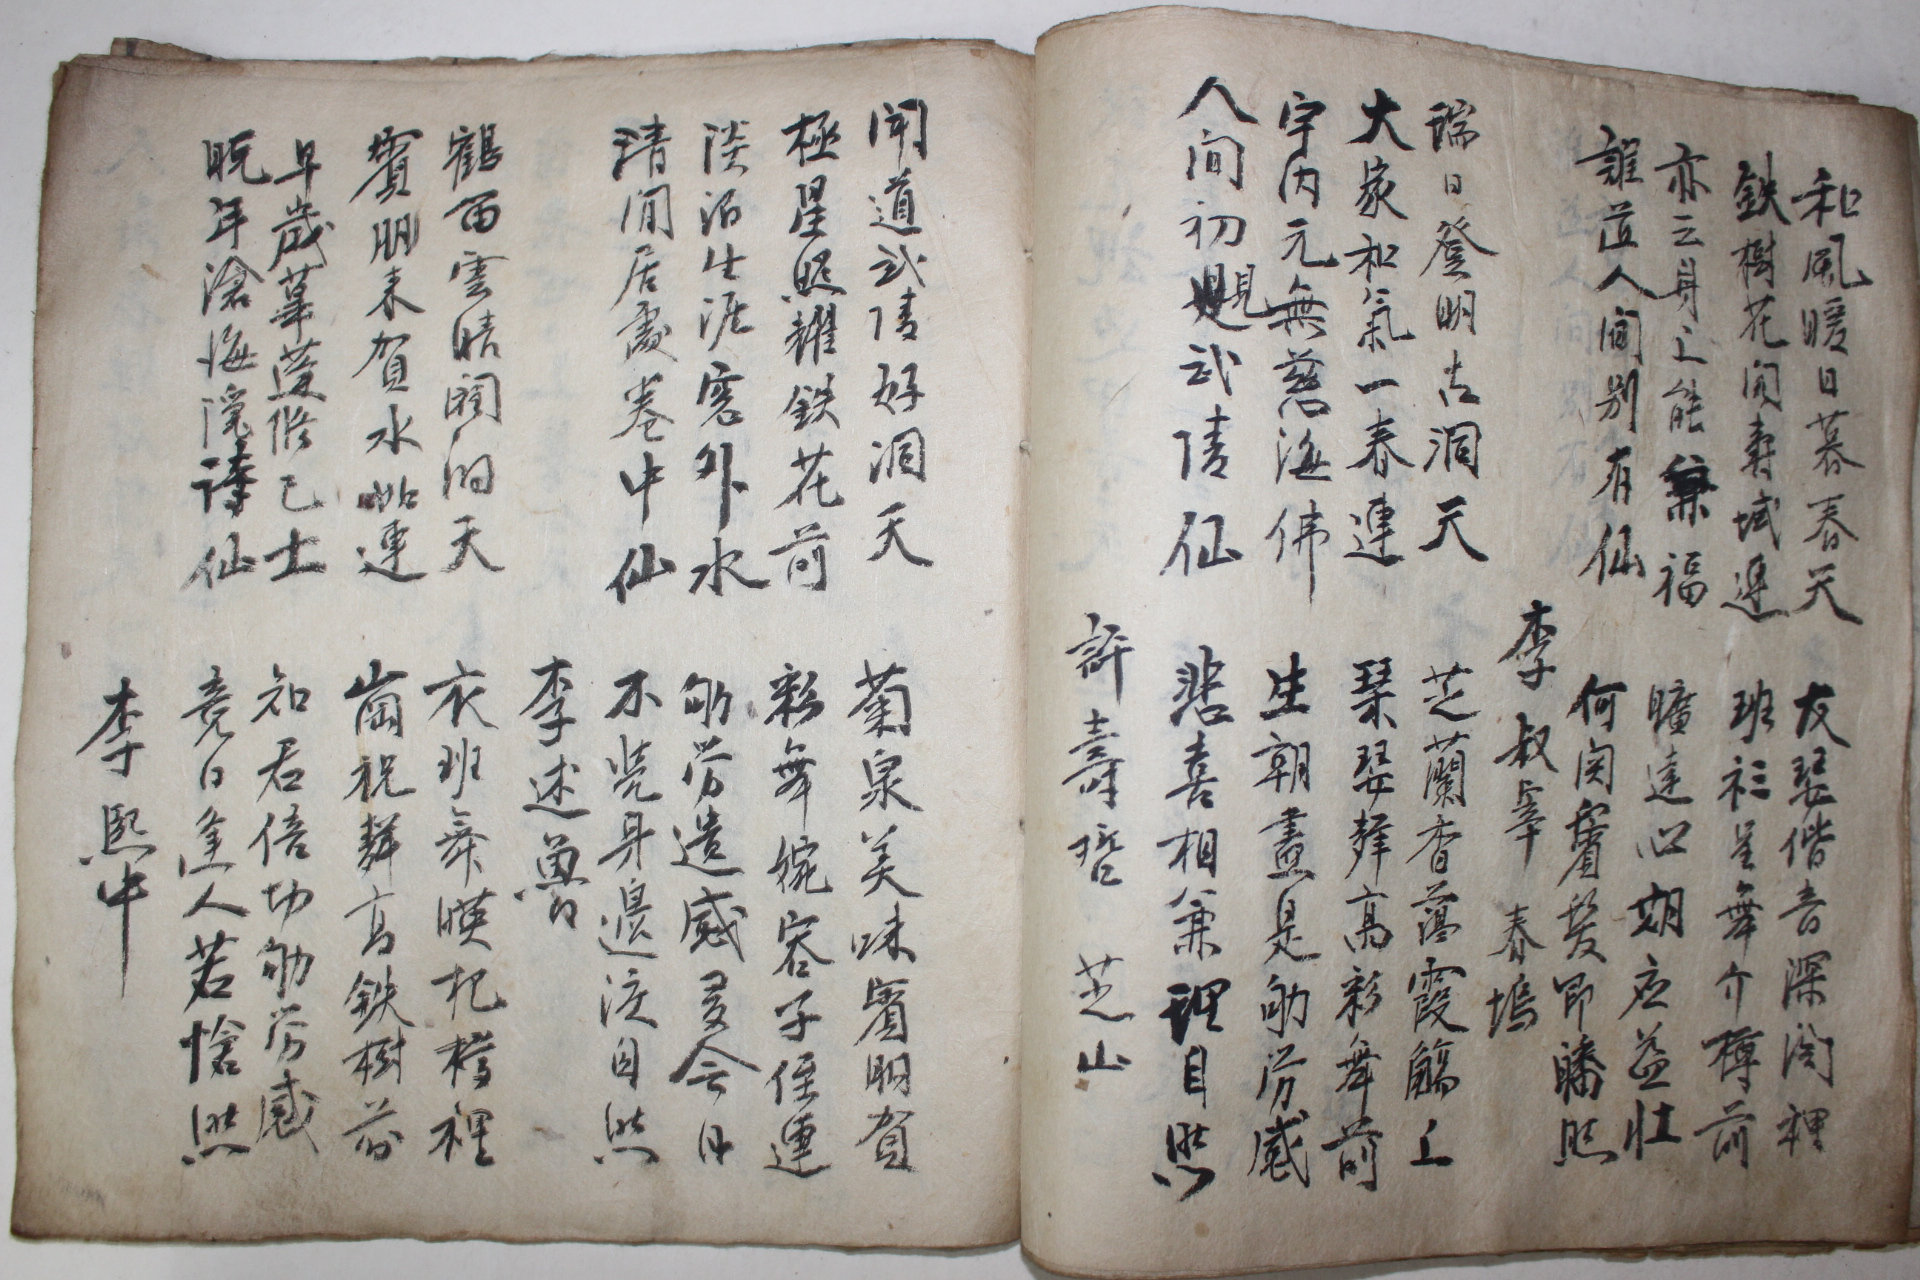 和風暖日暮春天 友琴偕音深閤裡
鉄樹花開壽域連 班衫呈舞介樽前
亦云身上能兼福 曠達心期应益壯
誰道人間別有仙 何関鬢髮即皤然
李叔宰 春塢
瑞日登明古洞天 芝蘭香藹霞觴上
大家和氣一春連 琴瑟聲高彩舞前
宇内元無慈海佛 生朝盡是劬劳感
人間初見武陵仙 悲喜相兼理自然
許壽哲 芝山
聞道武陵好洞天 菊泉美味賓朋賀
極星照耀鉄花前 彩舞婉容子侄連
淡泊生涯窓外水 劬劳遺感多今日
清閒居處卷中仙 不覚身邊淚自然
李述魯
鶴西雲晴闊的天 衣班舞暎杞樽裡
賓朋来賀水如連 崗祝聲高鉄樹前
早歲墓蘆修己士 知君倍切劬劳感
晩年滄海隠詩仙 竟日逢人若愴然
李熙中